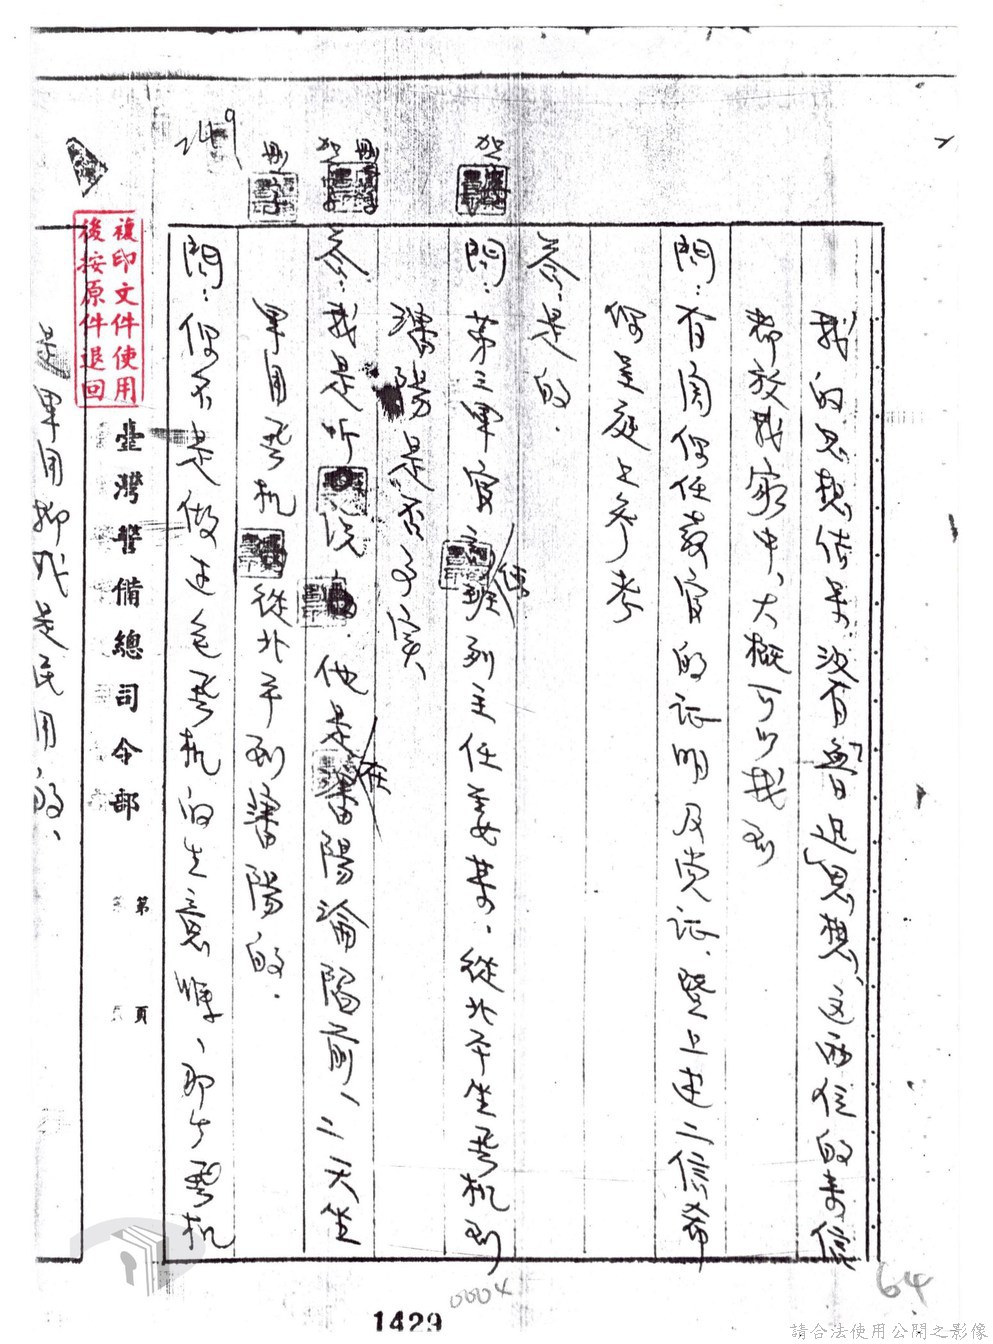 我的思想信仰沒有過「迅」思想、这兩位的来信
都放我家中、大概可以找到
問：有關你任教官的証明及党証、暨上述二信希
你呈庭上参考
答：是的.
問：第三軍官 班列主任姜某、從北平坐飛机到
瀋陽是否事實、
答：我是听 说 他是在瀋陽淪陷前一二天坐
軍用飛机 從北平到瀋陽的.
問：你不是做过包飛机的生意嘛、那个飛机
臺灣警備總司令部
第 頁
是軍用抑或是民用的、
複印文件使用
後按原件退回
249
加
刪
加
刪
64
0004
1429
請合法使用公開之影像